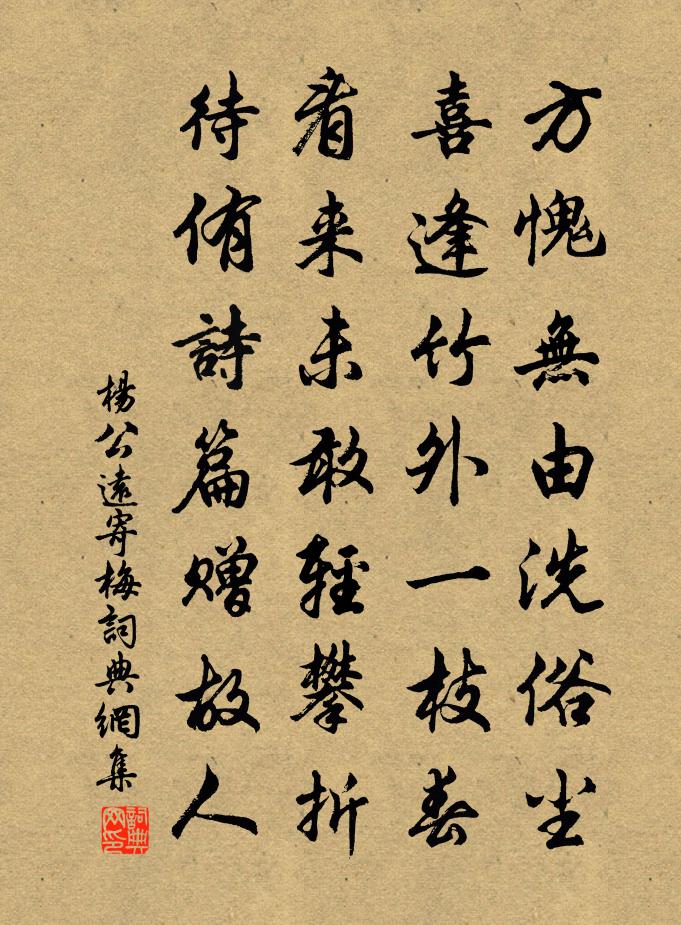 方愧無由洗俗尘
喜逢竹外一枝春
看来未敢輕攀折
待侑詩篇赠故人
楊公遠寄梅詞典網集
詞典网印